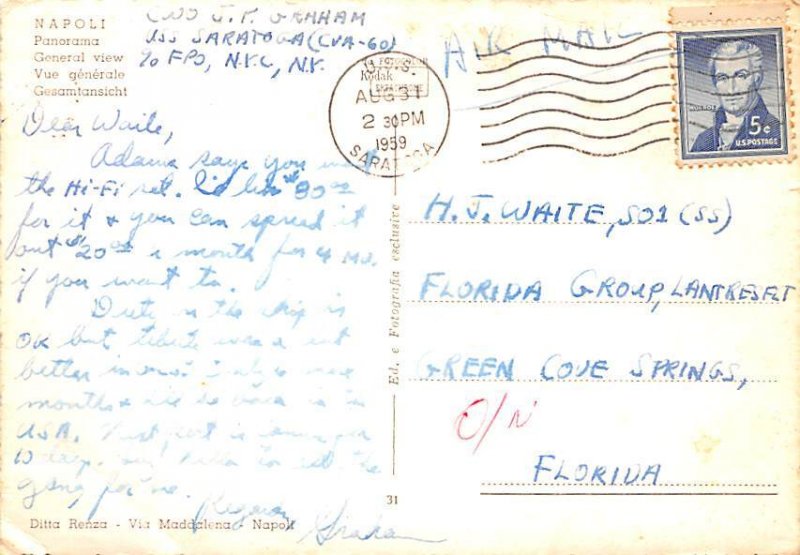 NAPOLI
Panorama
General view
Vue générale
Gesamtansicht
CWO J.P. GRAHAM
USS SARATOGA (CVA-60)
% FPO, N.Y.C, N.Y.
AIR MAIL
U.S.S.
AUG 31
2 30 PM
1959
SARATOGA
Kodak
MONROE
5¢
U.S. POSTAGE
Dear Waite,
Adams says you want
the Hi-Fi set. I'd like $80.00
for it & you can spread it
out $20.00 a month for 4 mo.
if you want to.
Duty on the ship is
OK but
better in
months & back in
USA. Next port is
10 days. Say hello to all the
gang for me.
Regards
Graham
H.J. WAITE, SO1 (SS)
FLORIDA GROUP, LANTRESFLT
GREEN COVE SPRINGS,
O/N
FLORIDA
Ed. e Fotografia esclusive
31
Ditta Renza - Via Maddalena - Napoli